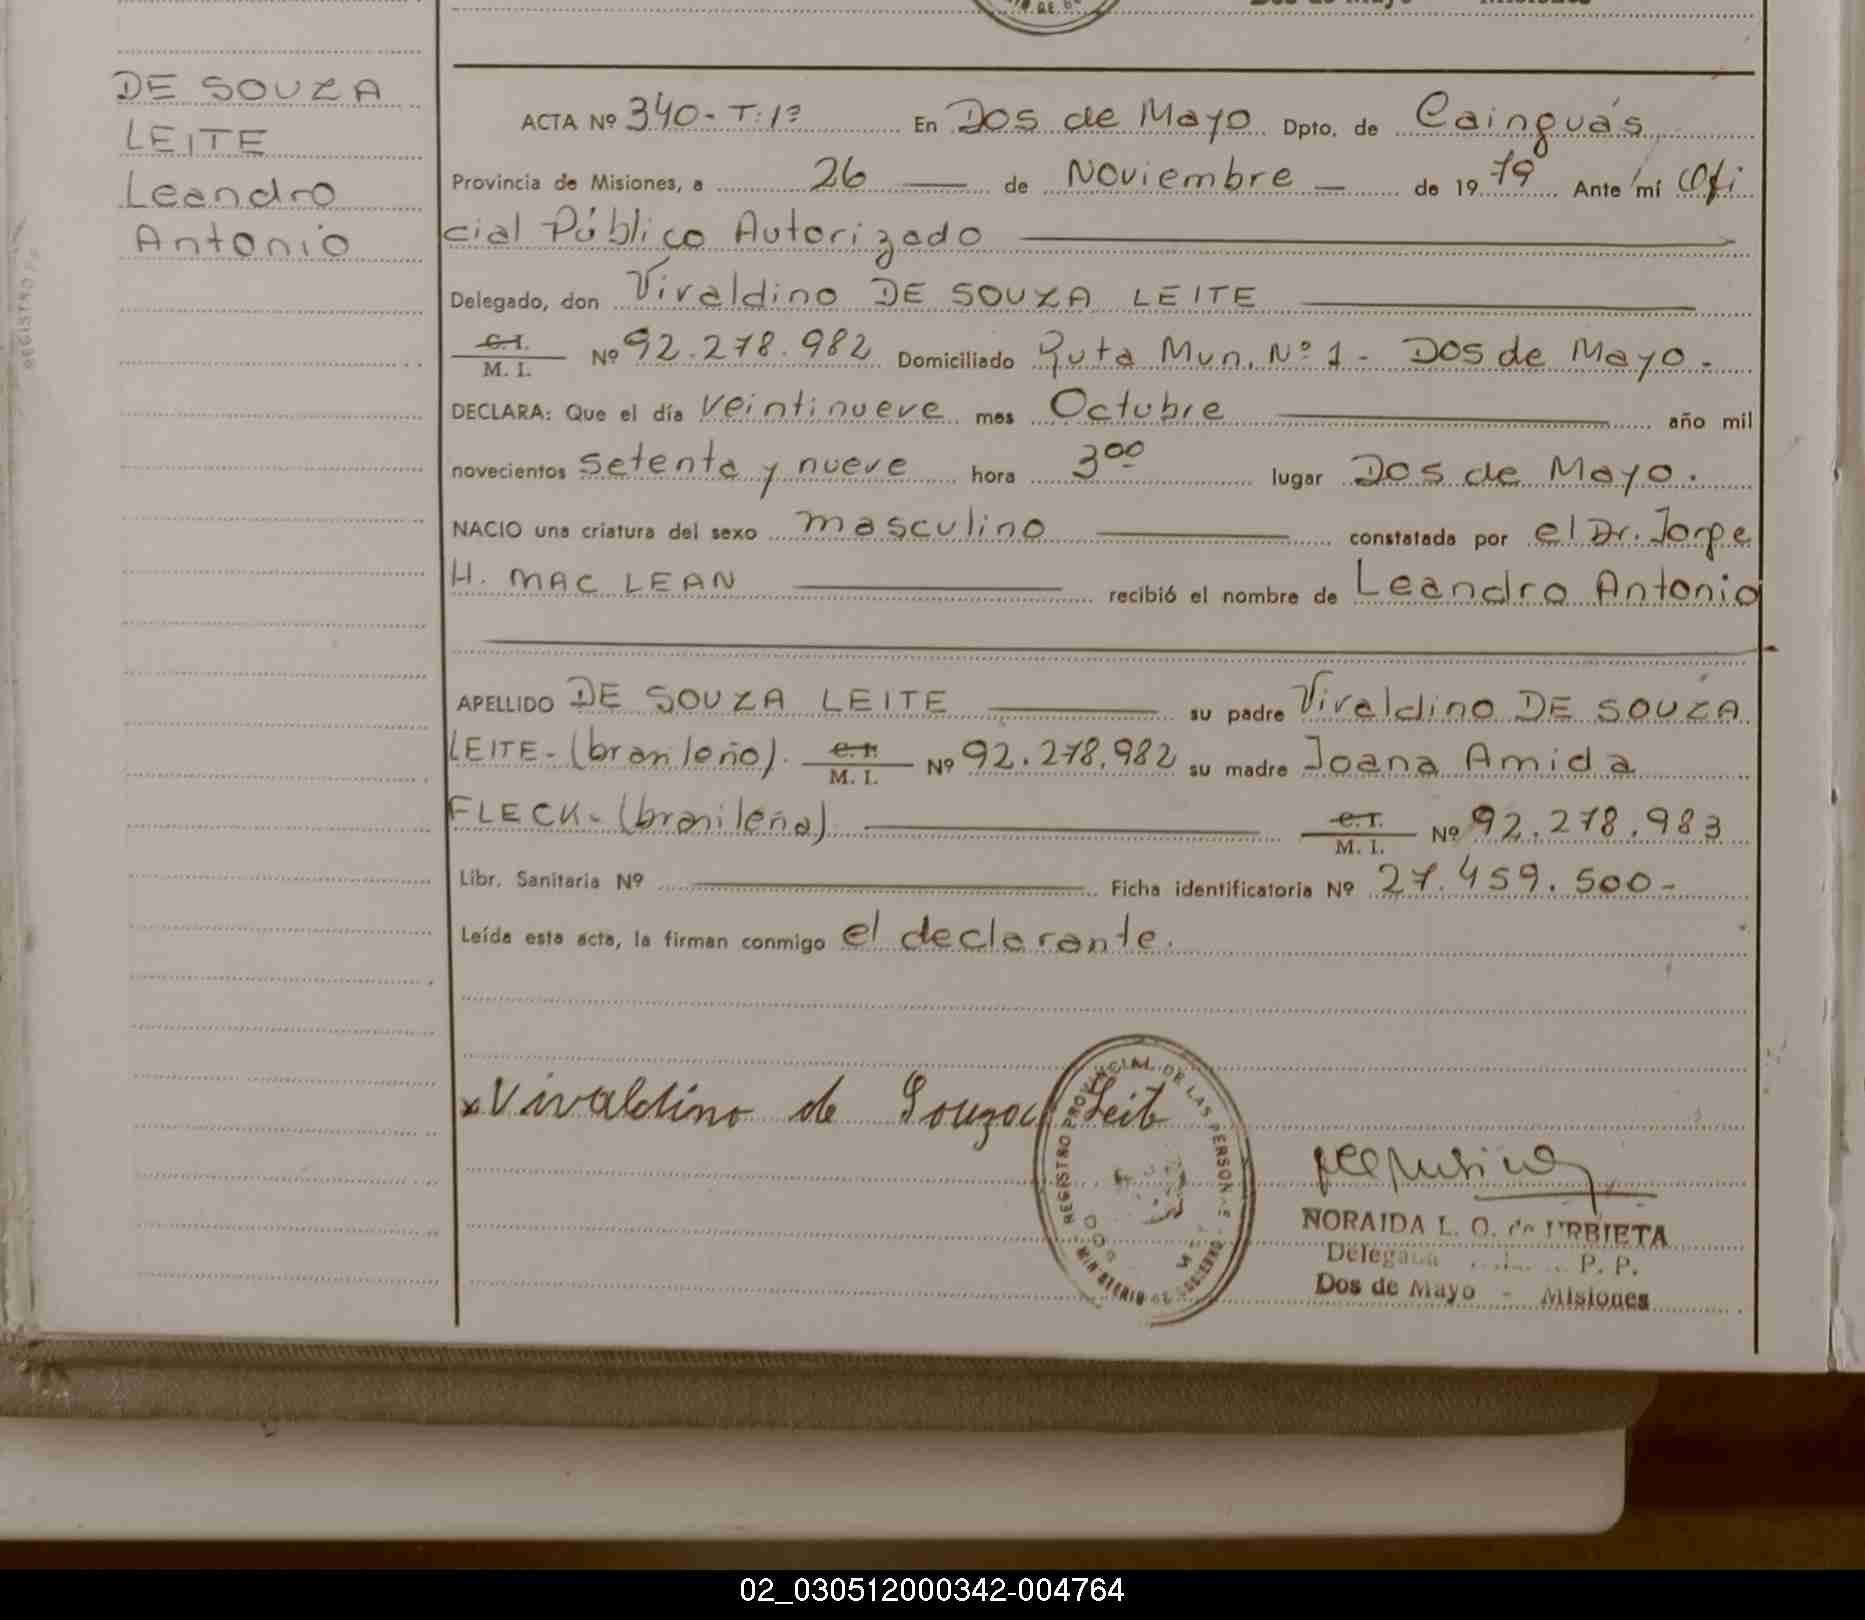 DE SOUZA
LEITE
Leandro
Antonio
ACTA Nº 340- T: 1º En Dos de Mayo Dpto. de Cainguás
Provincia de Misiones, a 26 — de Noviembre — de 1979 Ante mí Ofi
cial Público Autorizado
Delegado, don Vivaldino DE SOUZA LEITE
C.I.
M. I. Nº 92.278.982 Domiciliado Ruta Mun. Nº 1 - Dos de Mayo.-
DECLARA: Que el día veintinueve mes Octubre año mil
novecientos setenta y nueve hora 3 00 lugar Dos de Mayo.
NACIO una criatura del sexo masculino constatada por el Dr. Jorge
H. MAC LEAN recibió el nombre de Leandro Antonio
APELLIDO DE SOUZA LEITE su padre Vivaldino DE SOUZA
LEITE- (brasileño). C.I. M. I. Nº 92.278.982 su madre Joana Amida
FLECK- (brasileña) C.I. M. I. Nº 92.278.983
Libr. Sanitaria Nº Ficha identificatoria Nº 27.459.500-
Leída esta acta, la firman conmigo el declarante.
x Vivaldino de Souza Leit
REGISTRO PROVINCIAL DE LAS PERSON
MINISTERIO DE GOBIERNO
DOS
NORAIDA L. O. de URBIETA
Delegada P. P.
Dos de Mayo - Misiones
02_030512000342-004764